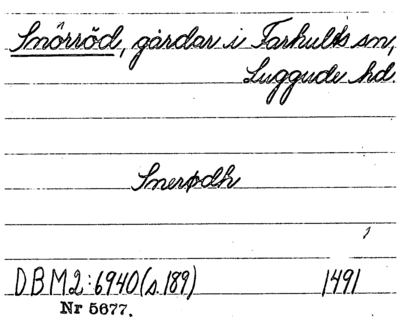 Snörröd, gårdar i Farhults sn,
Luggude hd.
Snerødh
DBM2:6940(s.189) 1491
Nr 5677.